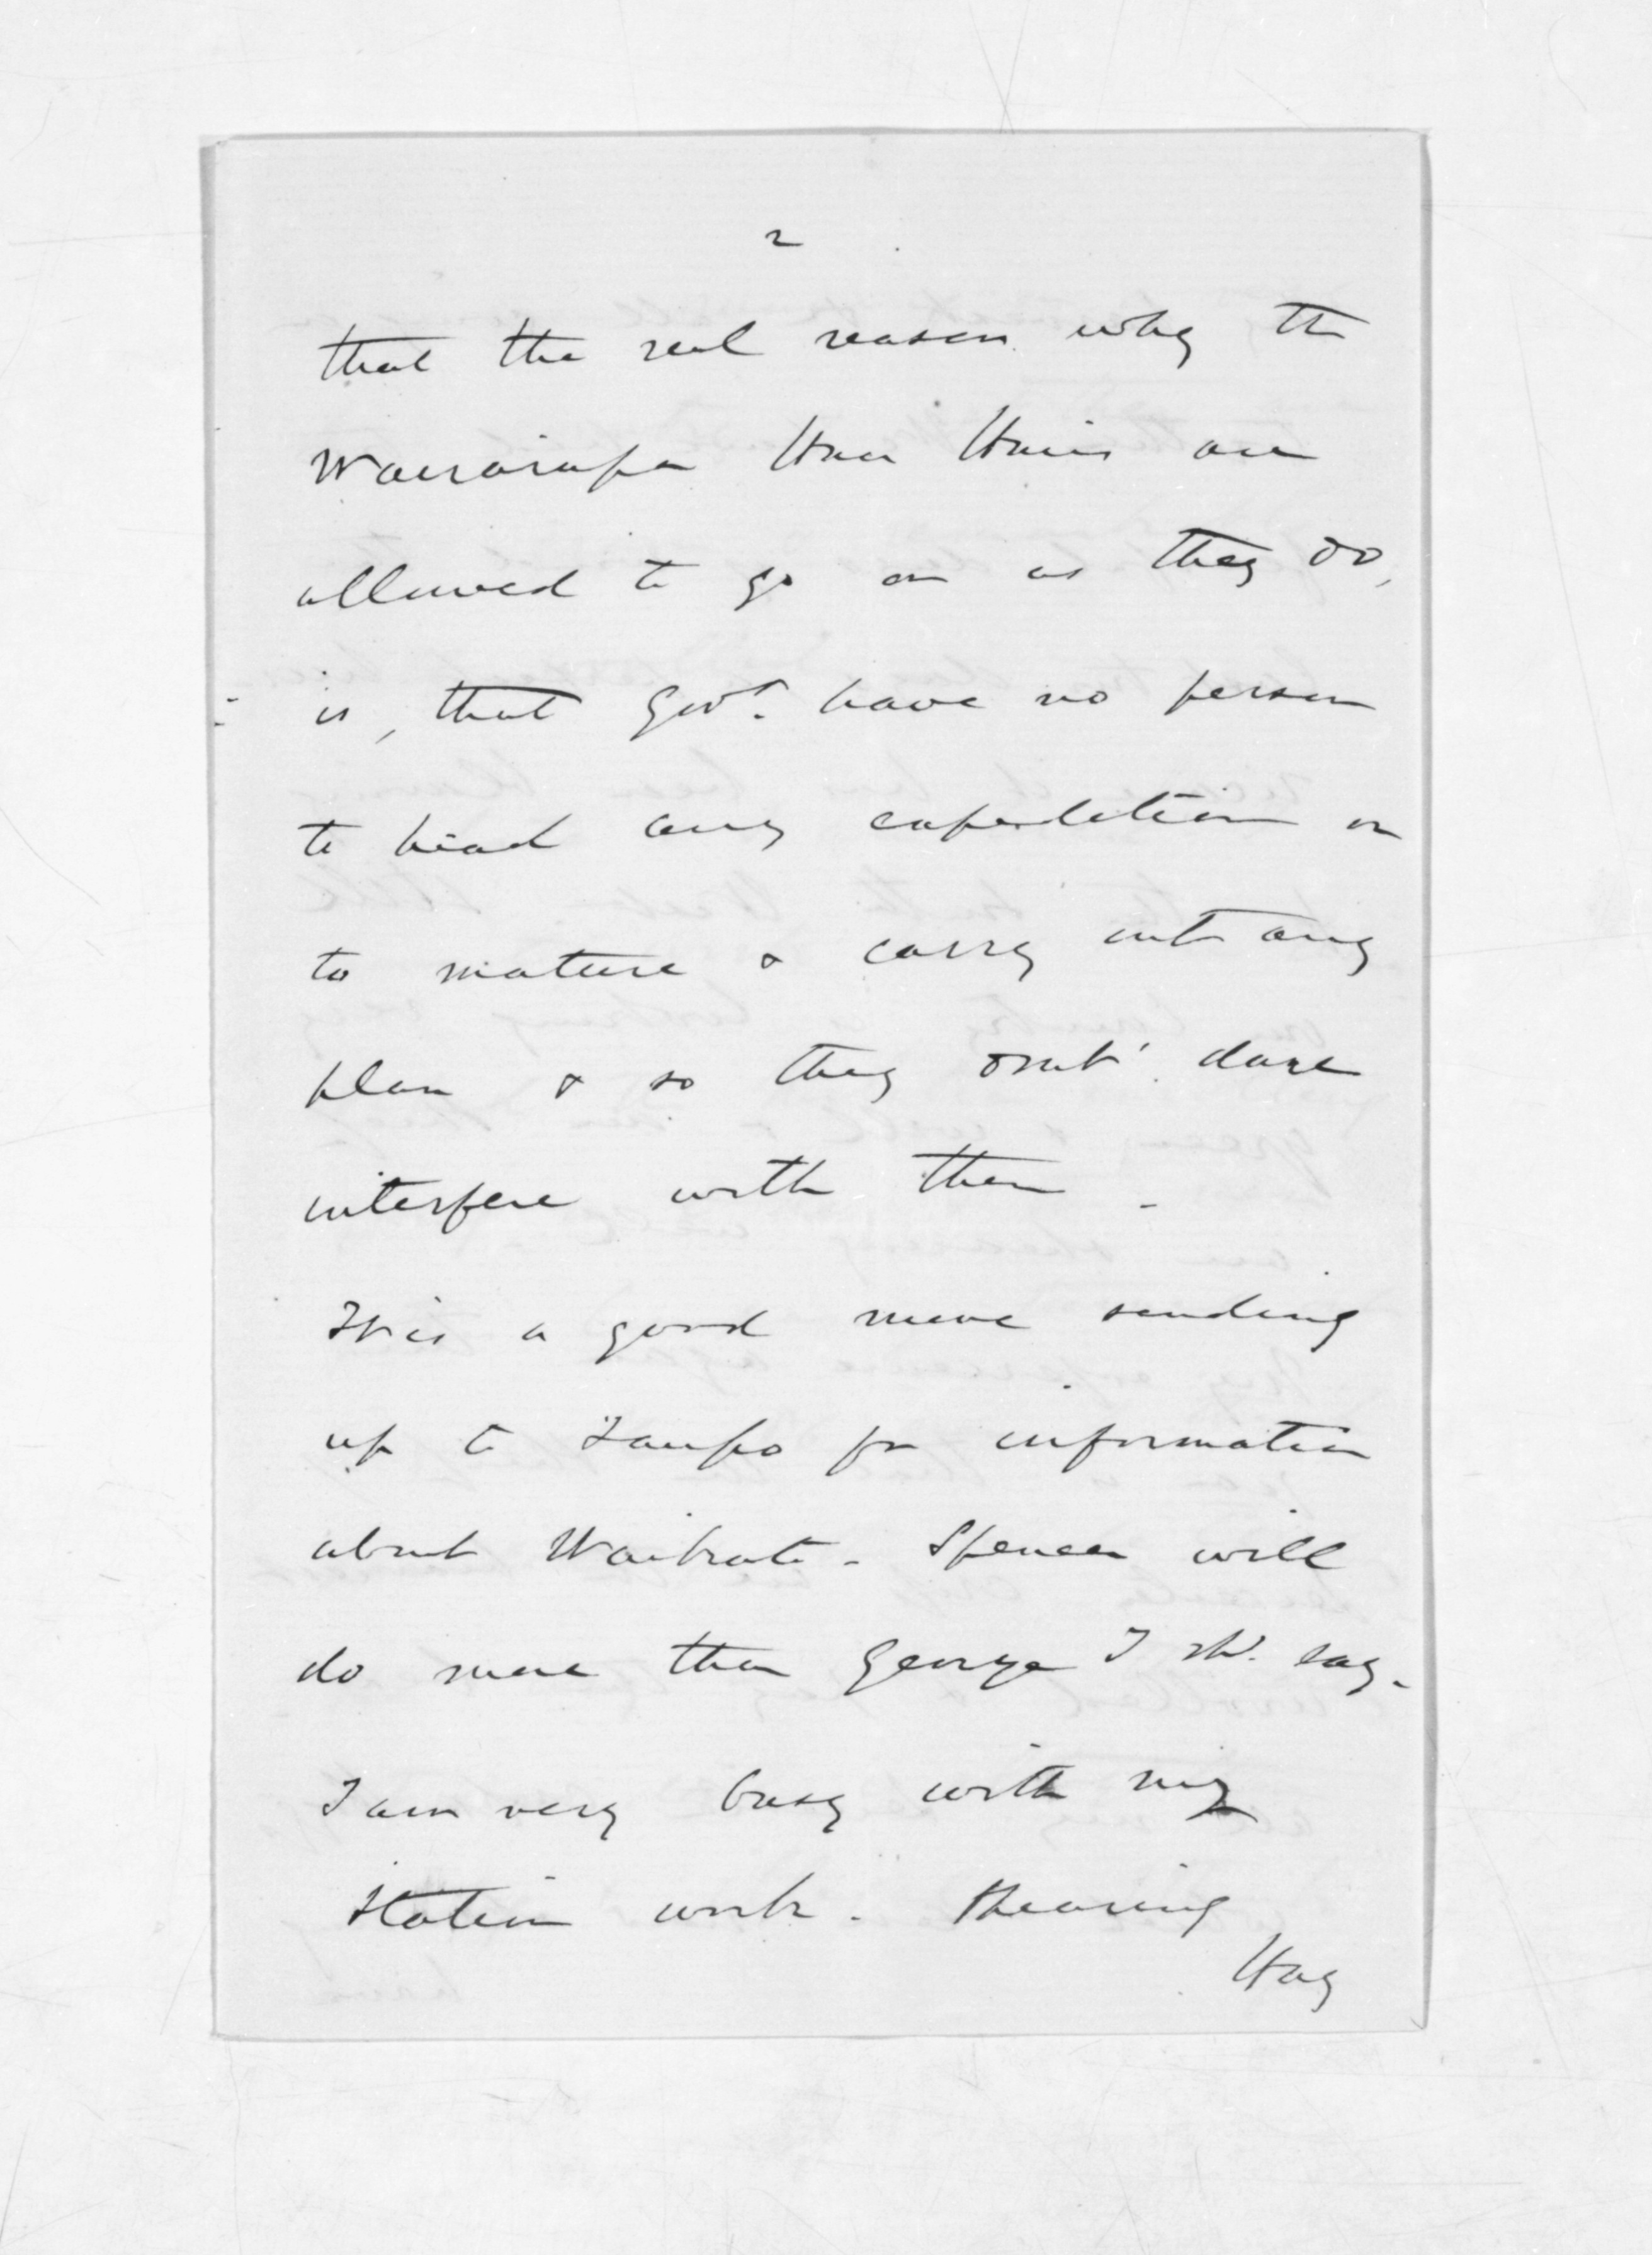 2
that the real reason why the
Wairarapa Hau Haus are
allowed to go on as they do,
is, that Govt. have no person
to head any expedition or
to mature & carry out any
plan & so they don't dare
interfere with them -
It is a good move sending
up to Taupo for information
about Waikato - Spencer will
do more than George I shd. say.
I am very busy with my
Station work. Shearing
Hay